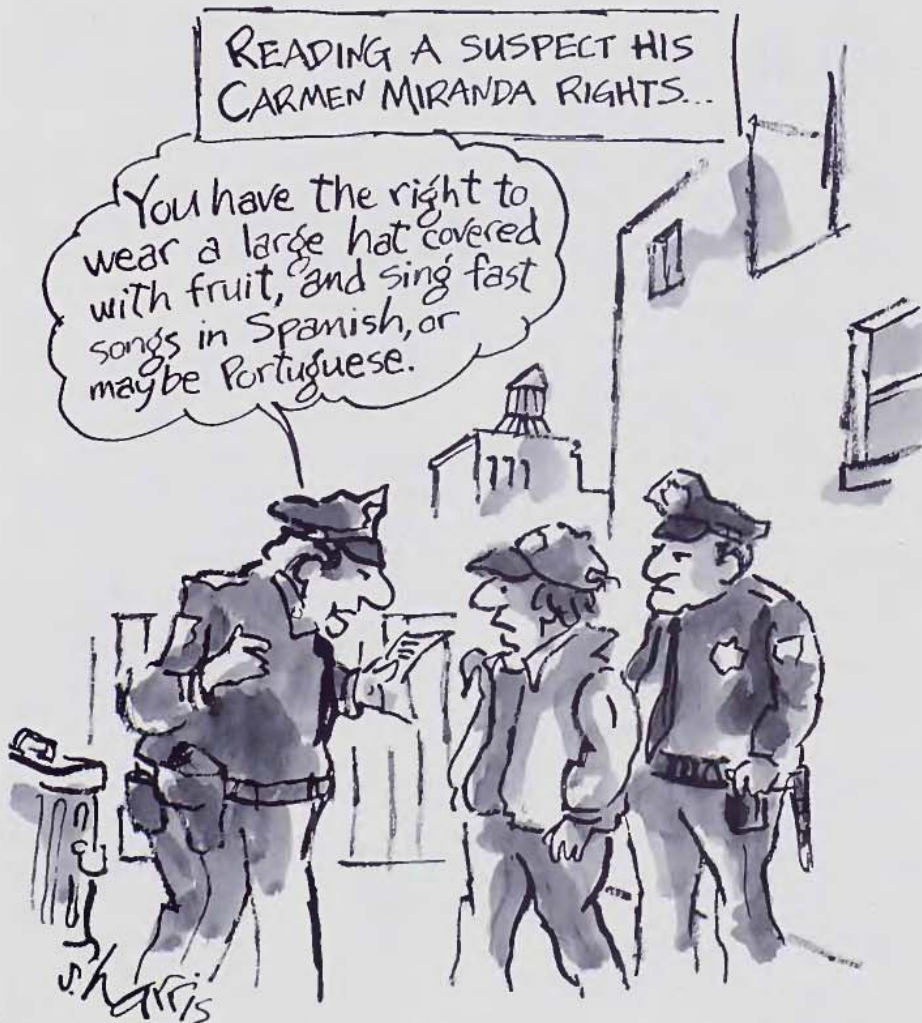 READING A SUSPECT HIS
CARMEN MIRANDA RIGHTS...
You have the right to
wear a large hat covered
with fruit, and sing fast
songs in Spanish, or
maybe Portuguese.
S. Harris